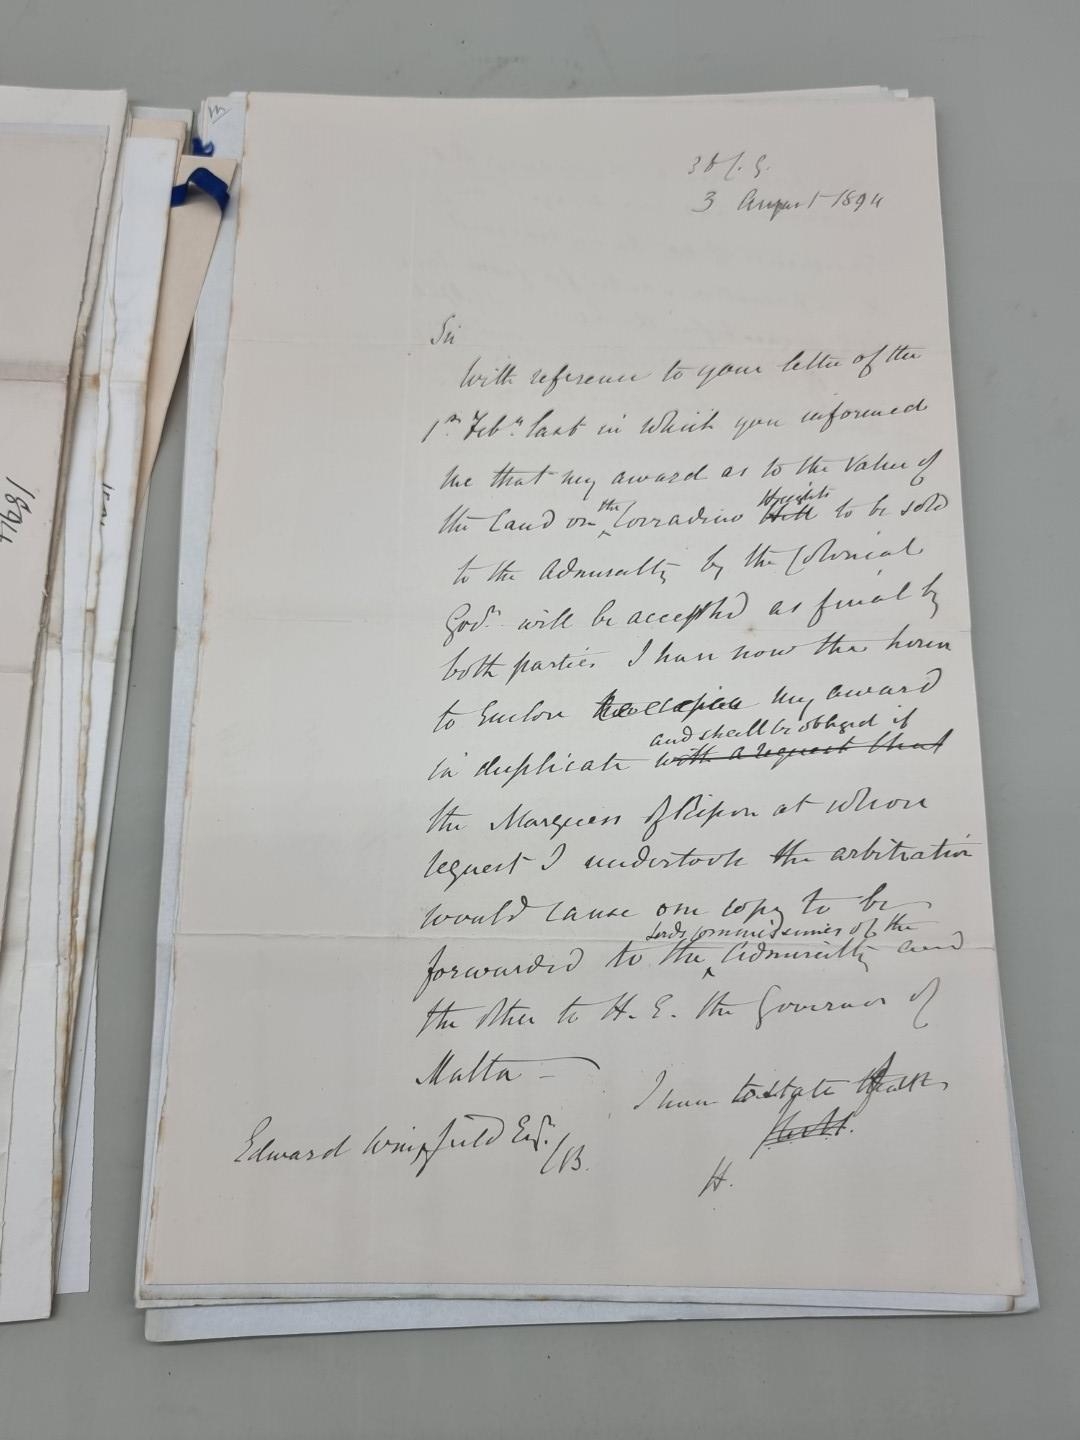 3 August 1894
Sir
With reference to your letter of the
1st Feby. last in which you informed
me that my award as to the value of
the land on the Corradino Heights Hill to be sold
to the Admiralty by the Colonial
Govt. will be accepted as final by
both parties I have now the honour
to enclose two copies my award
in duplicate and shall be obliged if with a request that
the Marquess of Ripon at whose
request I undertook the arbitration
would cause one copy to be
forwarded to the Lords Commissioners of the Admiralty and
the other to H. E. the Governor of
Malta —
I have to state
Edward Wingfield Esqr. CB.
H.
1894